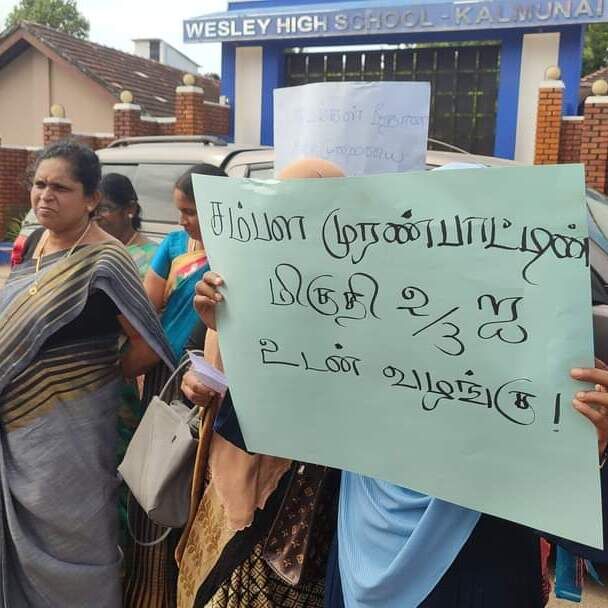 WESLEY HIGH SCHOOL - KALMUNAI
சம்பள முரண்பாட்டின்
மிகுதி 2/3 ஐ
உடன் வழங்கு!